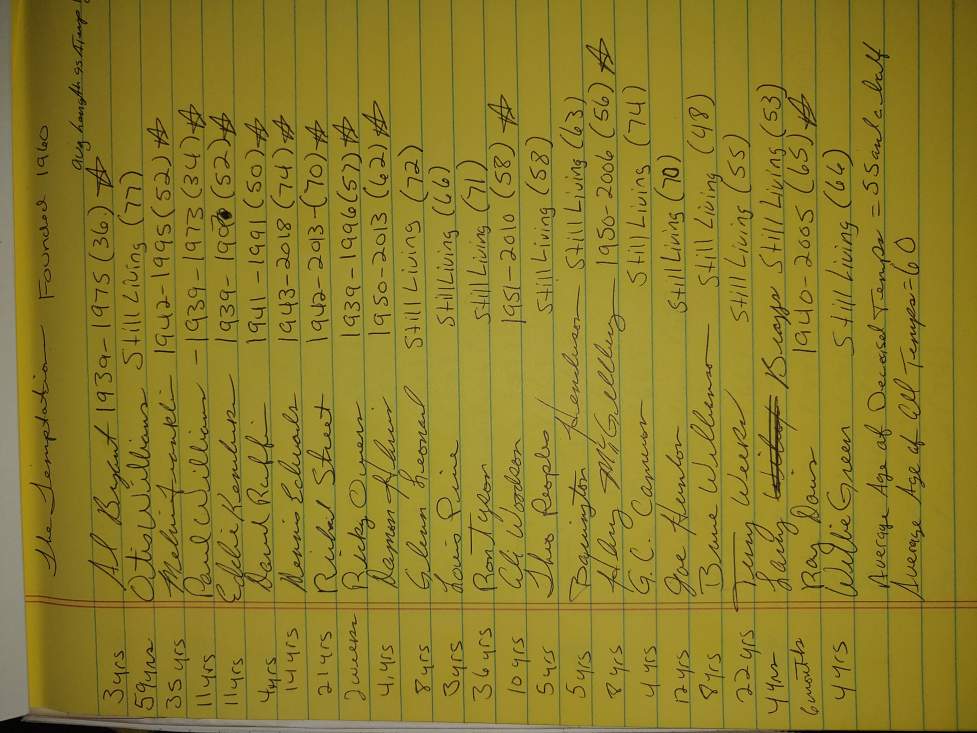 The Temptation Founded 1960
avg length as a Temp
3 yrs Al Bryant 1939-1975 (36) ☆
59 yrs Otis Williams Still Living (77)
35 yrs Melvin Franklin 1942-1995 (52) ☆
11 yrs Paul Williams - 1939-1973 (34) ☆
11 yrs Eddie Kendricks 1939-1990 (52) ☆
4 yrs David Ruffin 1941-1991 (50) ☆
14 yrs Dennis Edwards 1943-2018 (74) ☆
21 yrs Richard Street 1942-2013- (70) ☆
2 weeks Ricky Owens 1939-1996 (57) ☆
4 yrs Damon Harris 1950-2013 (62) ☆
8 yrs Glenn Leonard Still Living (72)
3 yrs Louis Price Still Living (66)
36 yrs Ron Tyson Still Living (71)
10 yrs Ali Woodson 1951-2010 (58) ☆
5 yrs Theo Peoples Still Living (58)
5 yrs Barrington Henderson Still Living (63)
8 yrs Harry McGilberry 1950-2006 (56) ☆
4 yrs G.C. Cameron Still Living (74)
12 yrs Joe Herndon Still Living (70)
8 yrs Bruce Williamson Still Living (48)
22 yrs Terry Weeks Still Living (55)
4 yrs Larry Braggs Still Living (53)
6 months Ray Davis 1940-2005 (65) ☆
4 yrs Willie Green Still Living (66)
Average Age of Deceased Temps = 55 and a half
Average Age of All Temps = 60